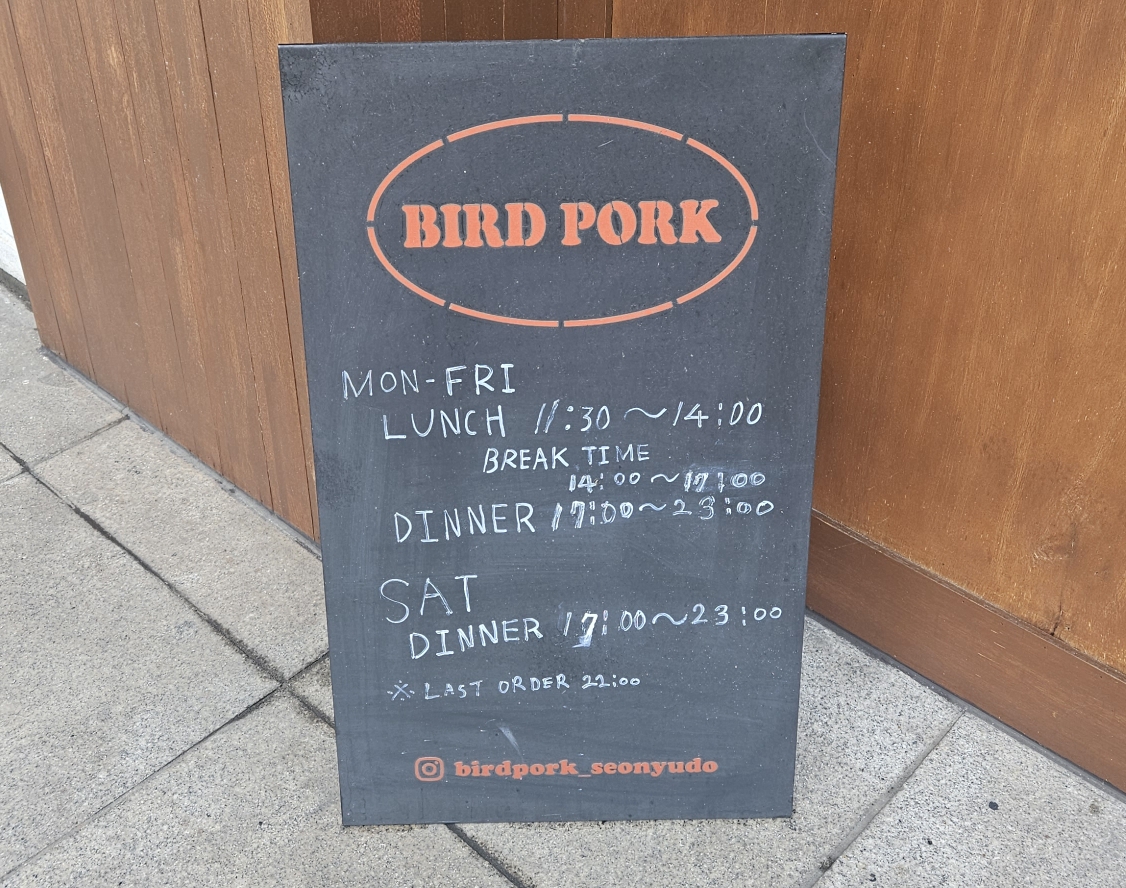 BIRD PORK
MON-FRI
LUNCH 11:30 ～14:00
BREAK TIME
14:00 ～17:00
DINNER 17:00～23:00
SAT
DINNER 17:00～23:00
※ LAST ORDER 22:00
birdpork_seonyudo